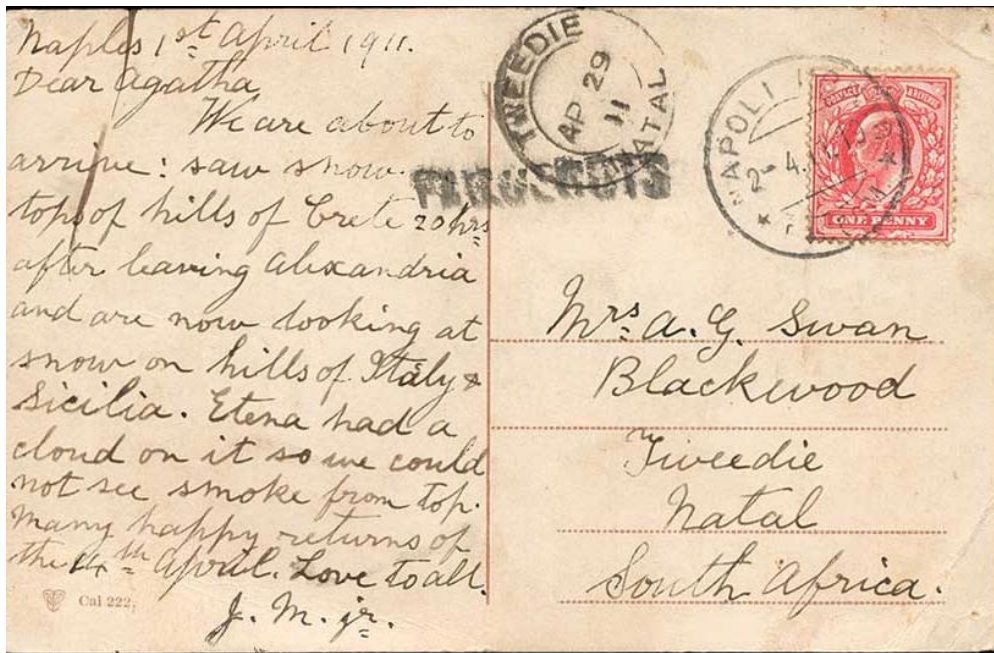 Naples 1st April 1911.
Dear Agatha,
We are about to
arrive: saw snow
tops of hills of Crete 20 hrs
after leaving Alexandria
and are now looking at
snow on hills of Italy &
Sicilia. Etena had a
cloud on it so we could
not see smoke from top.
Many happy returns of
the 14th April. Love to all.
J. M. jr.
Cal 222
TWEEDIE
AP 29
11
NATAL
PAQUEBOTS
NAPOLI
2-4.11
POSTAGE REVENUE
ONE PENNY
Mrs A. G. Swan
Blackwood
Tweedie
Natal
South Africa.